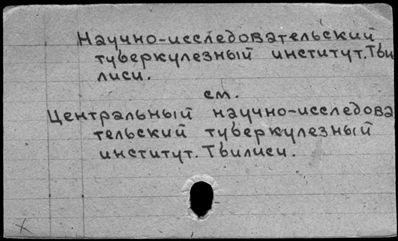 Научно-исследовательский
туберкулезный институт.Тби
лиси.
см.
Центральный научно-исследова
тельский туберкулезный
институт.Тбилиси.